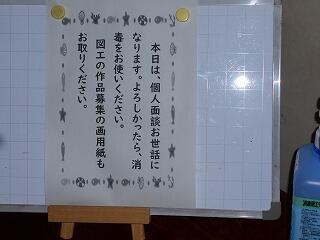 本日は、個人面談お世話に
なります。よろしかったら、消
毒をお使いください。
図工の作品募集の画用紙も
お取りください。